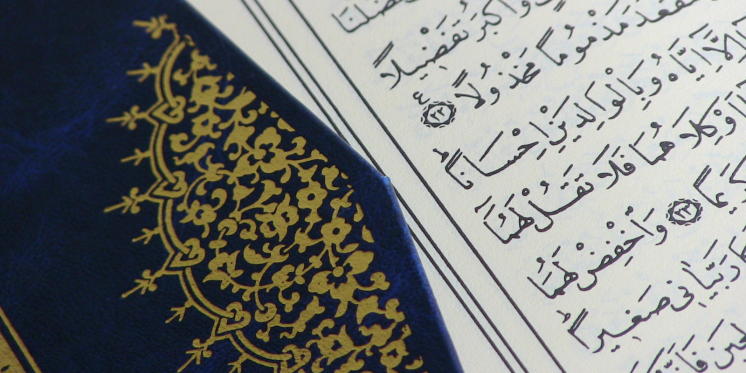 فَضَّلْنَا
وَأَكْبَرُ تَفْضِيلًا
فَتَقْعُدَ مَذْمُومًا مَخْذُولًا ٢٢
إِلَّا إِيَّاهُ وَبِالْوَالِدَيْنِ إِحْسَانًا
أَوْ كِلَاهُمَا فَلَا تَقُلْ لَهُمَا
ـرِيمًا ٢٣ وَاخْفِضْ لَهُمَا
رَبَّيَانِي صَغِيرًا